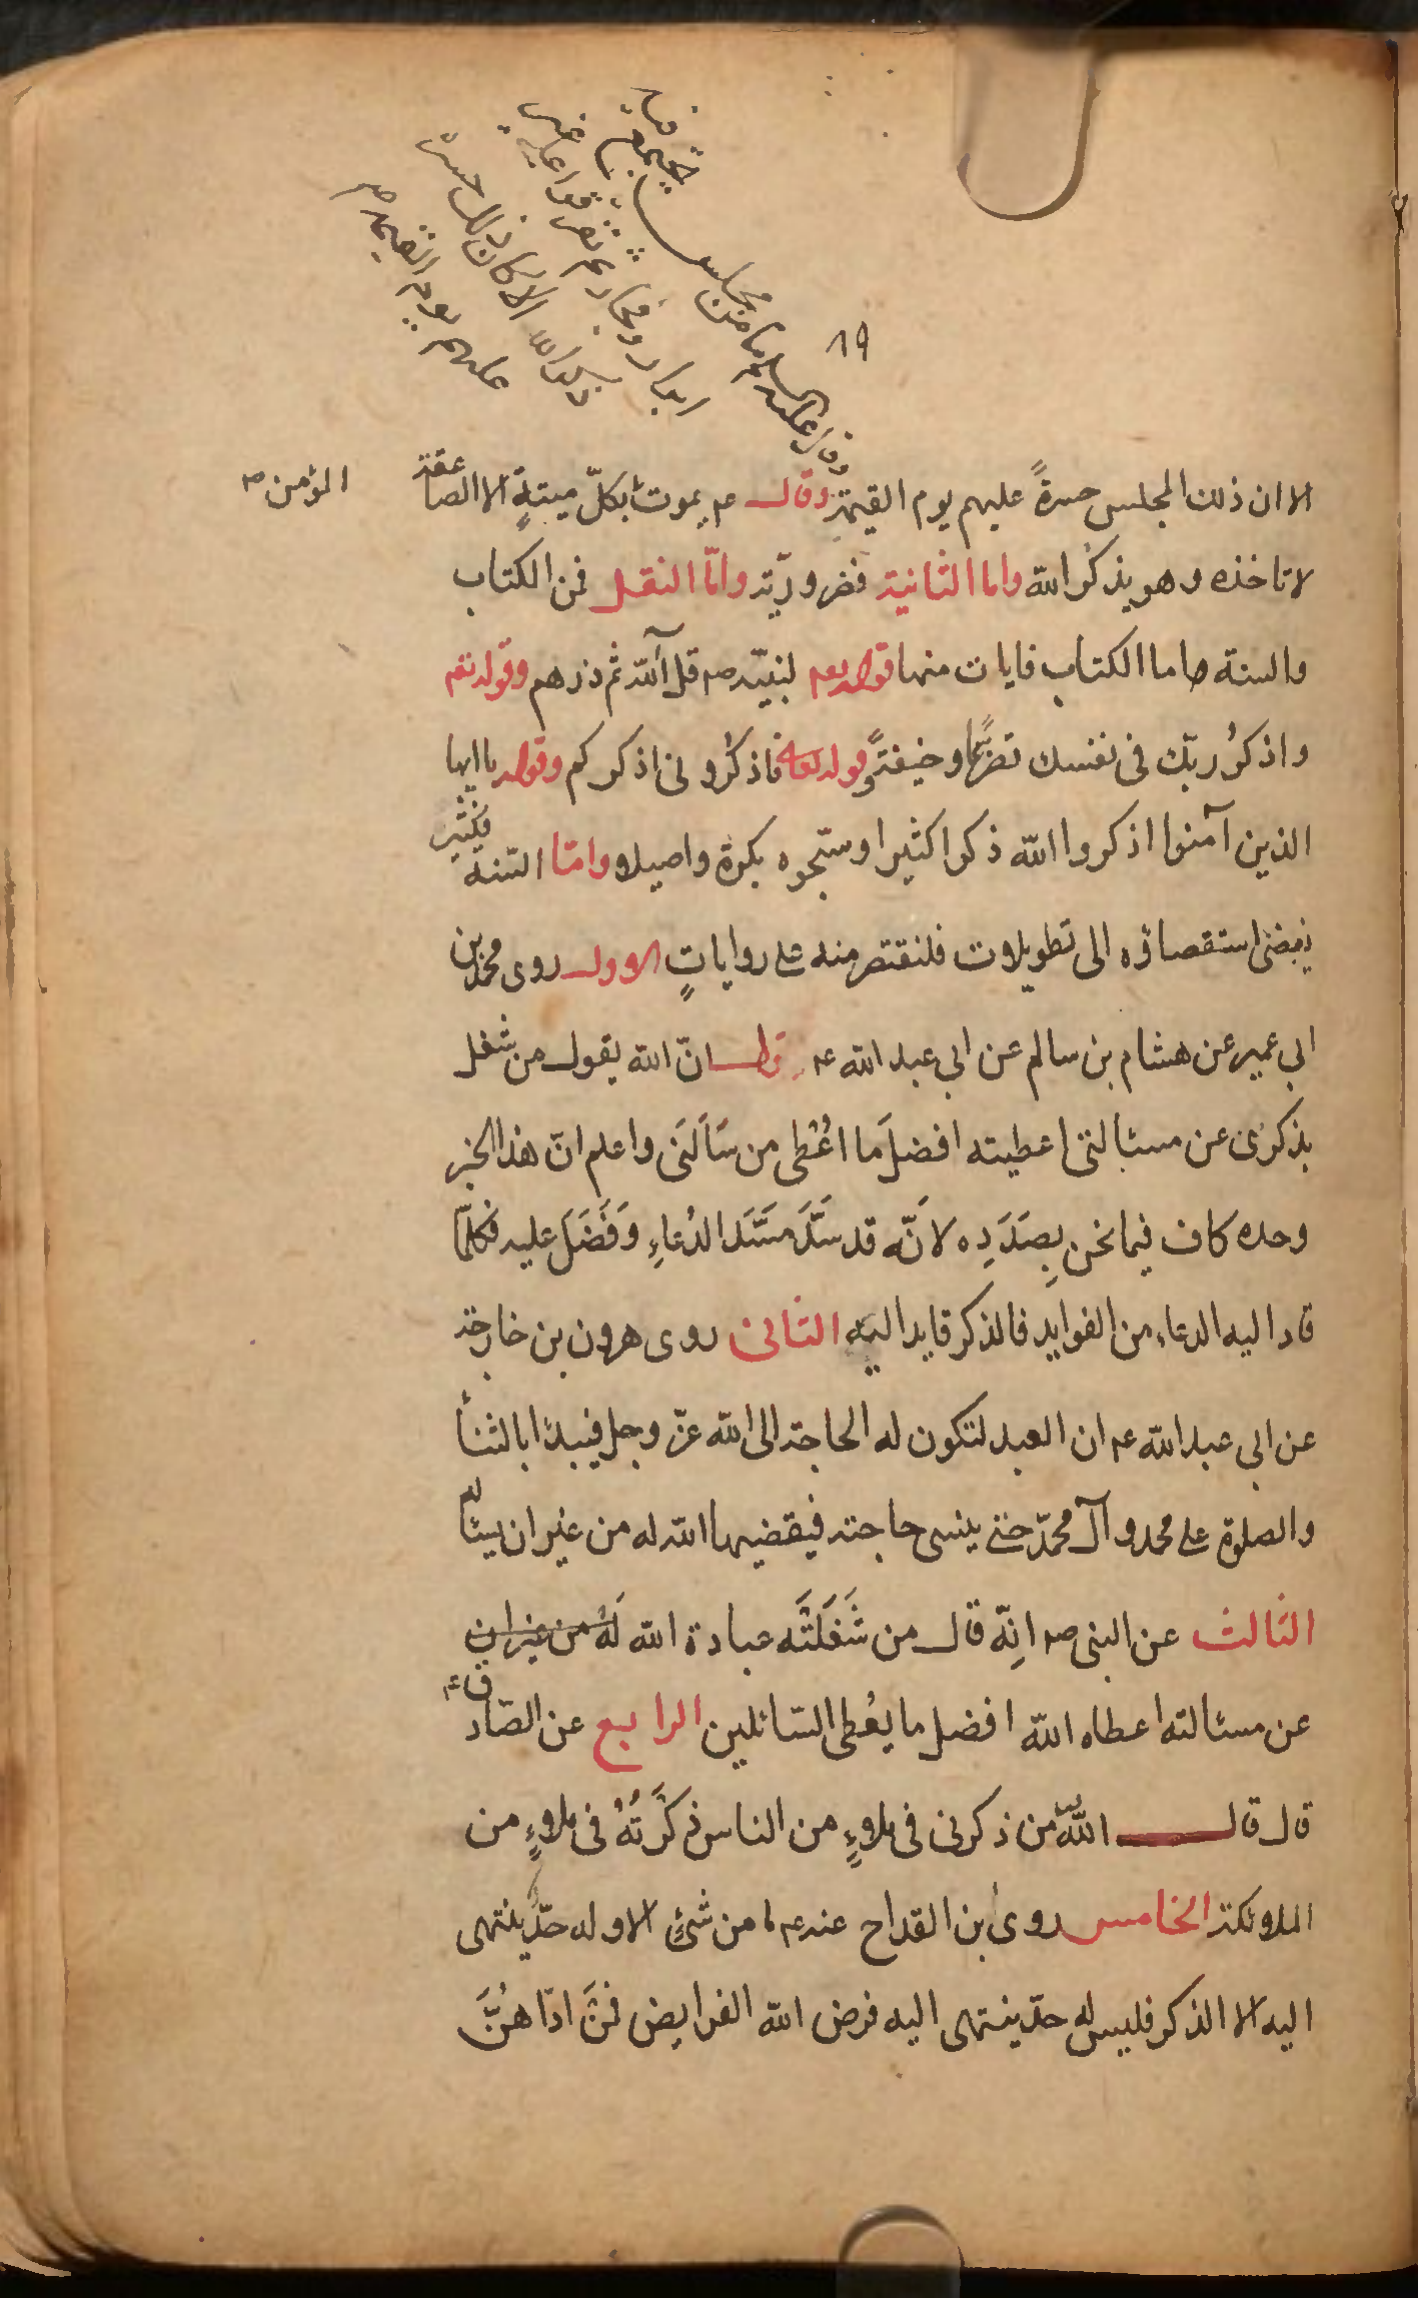 وقال عليه السلم ما من مجلس يجتمع فيه
ابرار وفجار ثم تفرقوا على غير
ذكر الله الا كان ذلك حسرة
عليهم يوم القيمة صح
١٩
الا ان ذلك المجلس حسرةً عليهم يوم القيمة وقال عم يموت بكلّ ميتةٍ الا الصاعقة
المؤمن ص
لا تاخذه وهو يذكرُ الله واما الثانية فضروريّة وامّا النقل فمن الكتاب
والسنة واما الكتاب فايات منها قوله تعم لنبيّه صم قل اللّه ثم ذرهم وقوله تعم
واذكرُ ربّك في نفسك تضرّعًا وخيفةً وقوله تعالى فاذكرُوني اذكركم وقوله يا ايها
الذين آمنوا اذكروا الله ذكرا كثيرا وسبّحوه بكرة واصيلا وامّا السّنة فكثير
يفضى استقصاؤه الى تطويلات فلنقتصر منه على رواياتٍ الاول روى محمد بن
ابي عمير عن هشام بن سالم عن ابي عبد الله عم قال انّ الله يقول من شغل
بذكرى عن مسئالتى اعطيته افضلَ ما اعُطى من سَاَلَنى واعلم انّ هذا الخبر
وحده كاف فيما نحن بِصَدَدِه لاَنّه قد سَدَّ مَسَدَّ الدُعاءِ وَفَضَلَ عليه فكلّما
قاد اليه الدعاء من الفوايد فالذكر قايد اليه الثانى روى هرون بن خارجة
عن ابي عبد الله عم ان العبد لتكون له الحاجة الى الله عزّ وجل فيبدأ بالثنأ
والصلوة على محمد وآل محمدّ حتى ينسى حاجته فيقضيها الله له من غير ان يسئاله
الثالث عن النبى صم انِّه قال من شَغَلَتْه عبادة الله لَهُ من غير ان
عن مسئالته اعطاه الله افضل ما يعُطى السّائلين الرابع عن الصّادق عم
قال قال الله من ذكرنى فى ملاءٍ من الناس ذكَرْتُهُ فى ملاءٍ من
الملائكة الخامس روى ابن القداح عنه عم ما من شئٍ الا وله حدّ ينتهى
اليه الا الذكر فليس له حدّ ينتهى اليه فرض الله الفرايض فمَنَ ادّاهُنَّ